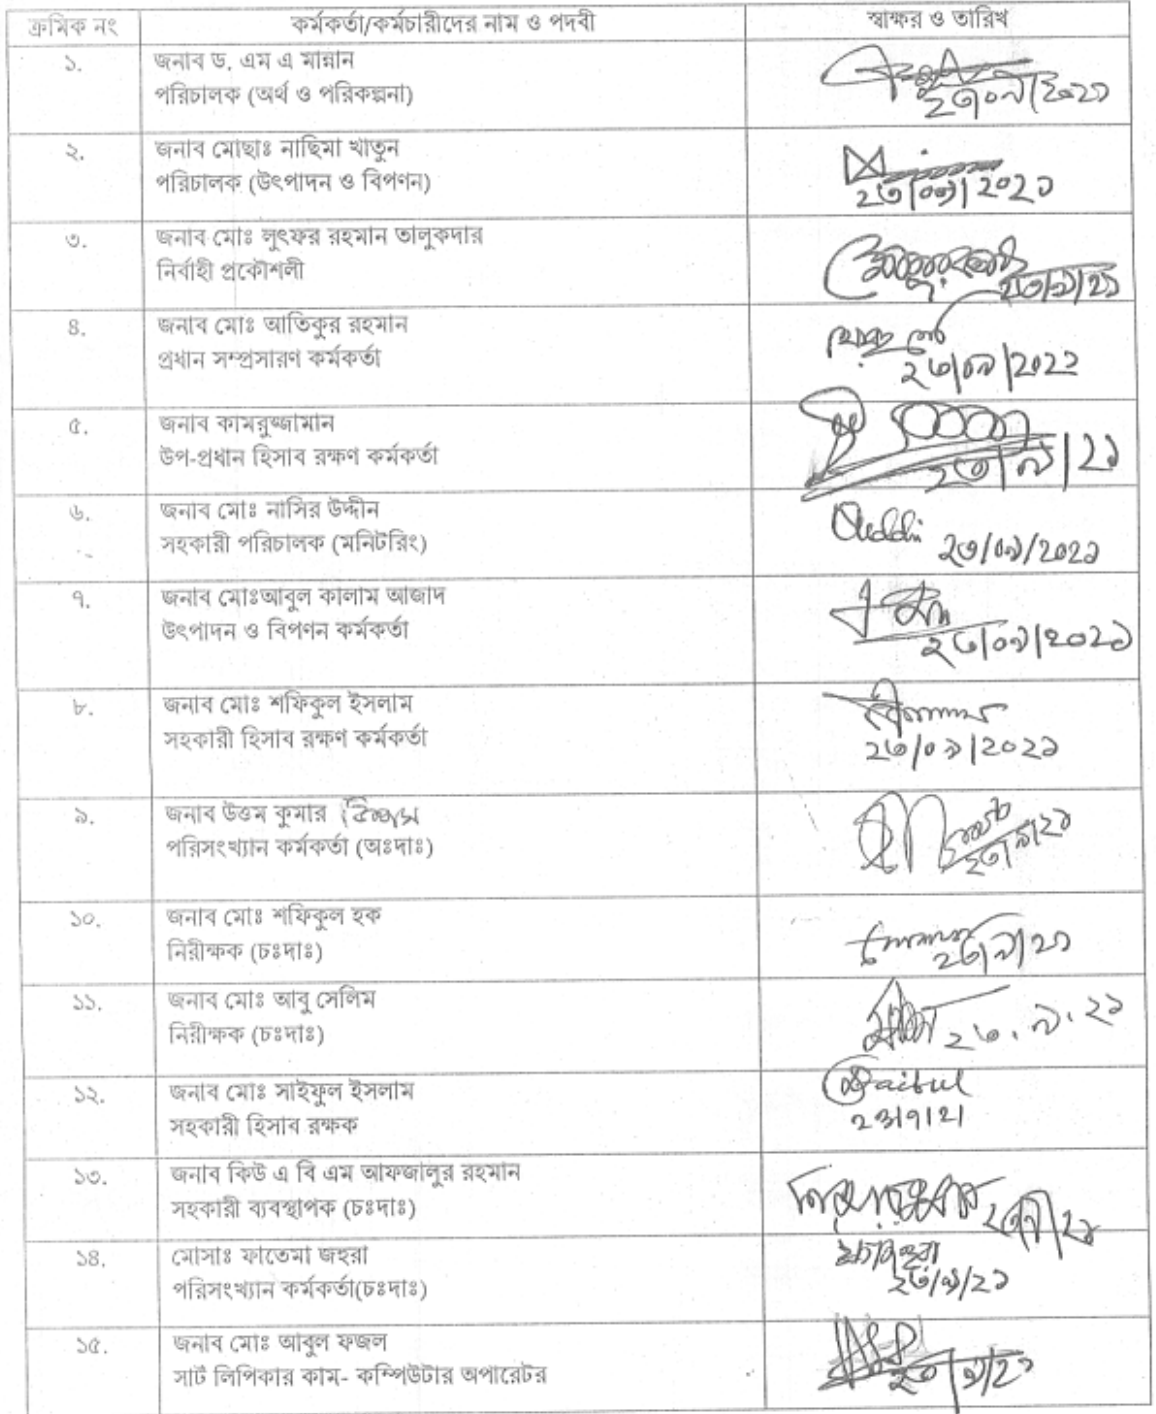 ক্রমিক নং কর্মকর্তা/কর্মচারীদের নাম ও পদবী স্বাক্ষর ও তারিখ
১. জনাব ড. এম এ মান্নান
পরিচালক (অর্থ ও পরিকল্পনা)
২৩/০৯/২০২১
২. জনাব মোছাঃ নাছিমা খাতুন
পরিচালক (উৎপাদন ও বিপণন)
২৩/০৯/২০২১
৩. জনাব মোঃ লুৎফর রহমান তালুকদার
নির্বাহী প্রকৌশলী
২৩/৯/২১
৪. জনাব মোঃ আতিকুর রহমান
প্রধান সম্প্রসারণ কর্মকর্তা
২৩/০৯/২০২১
৫. জনাব কামরুজ্জামান
উপ-প্রধান হিসাব রক্ষণ কর্মকর্তা
২৩/৯/২১
৬. জনাব মোঃ নাসির উদ্দীন
সহকারী পরিচালক (মনিটরিং)
২৩/০৯/২০২১
৭. জনাব মোঃআবুল কালাম আজাদ
উৎপাদন ও বিপণন কর্মকর্তা
২৩/০৯/২০২১
৮. জনাব মোঃ শফিকুল ইসলাম
সহকারী হিসাব রক্ষণ কর্মকর্তা
২৩/০৯/২০২১
৯. জনাব উত্তম কুমার
পরিসংখ্যান কর্মকর্তা (অঃদাঃ)
২৩/৯/২১
১০. জনাব মোঃ শফিকুল হক
নিরীক্ষক (চঃদাঃ)
২৩/৯/২১
১১. জনাব মোঃ আবু সেলিম
নিরীক্ষক (চঃদাঃ)
২৩.৯.২১
১২. জনাব মোঃ সাইফুল ইসলাম
সহকারী হিসাব রক্ষক
23/9/21
১৩. জনাব কিউ এ বি এম আফজালুর রহমান
সহকারী ব্যবস্থাপক (চঃদাঃ)
১৪. মোসাঃ ফাতেমা জহুরা
পরিসংখ্যান কর্মকর্তা(চঃদাঃ)
২৩/৯/২১
১৫. জনাব মোঃ আবুল ফজল
সার্ট লিপিকার কাম- কম্পিউটার অপারেটর
২৩/৯/২১